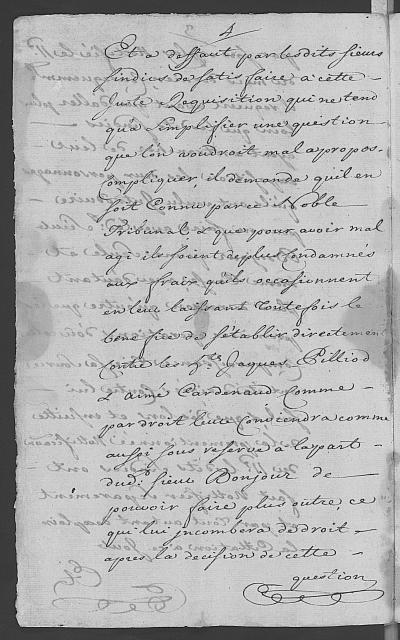 4
Et a deffaut par lesdits sieurs
sindics de satisfaire a cette
juste Requisition qui ne tend
qu'a simplifier une question
que l'on voudroit mal a propos
compliquer il demande qu'il en
soit Connu par ce Noble
Tribunal & que pour avoir mal
agi ils soient de plus Condamnés
aux fraix qu'ils occasionnent
en leur laissant toutefois le
benefice de s'établir directement
contre les Srs Jaques Pilliod
& Aimé Cardenaud Comme
par droit leur Conviendra comme
aussi sous reserve a la part
dudt sieur Bonjour de
pouvoir faire plus outre, ce
qui lui incombera de droit
apres la decision de cette
question